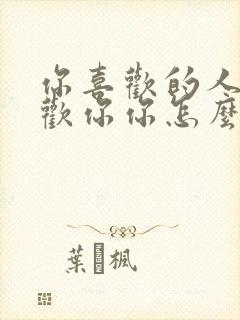 你喜歡的人
歡你你怎麼
葉楓